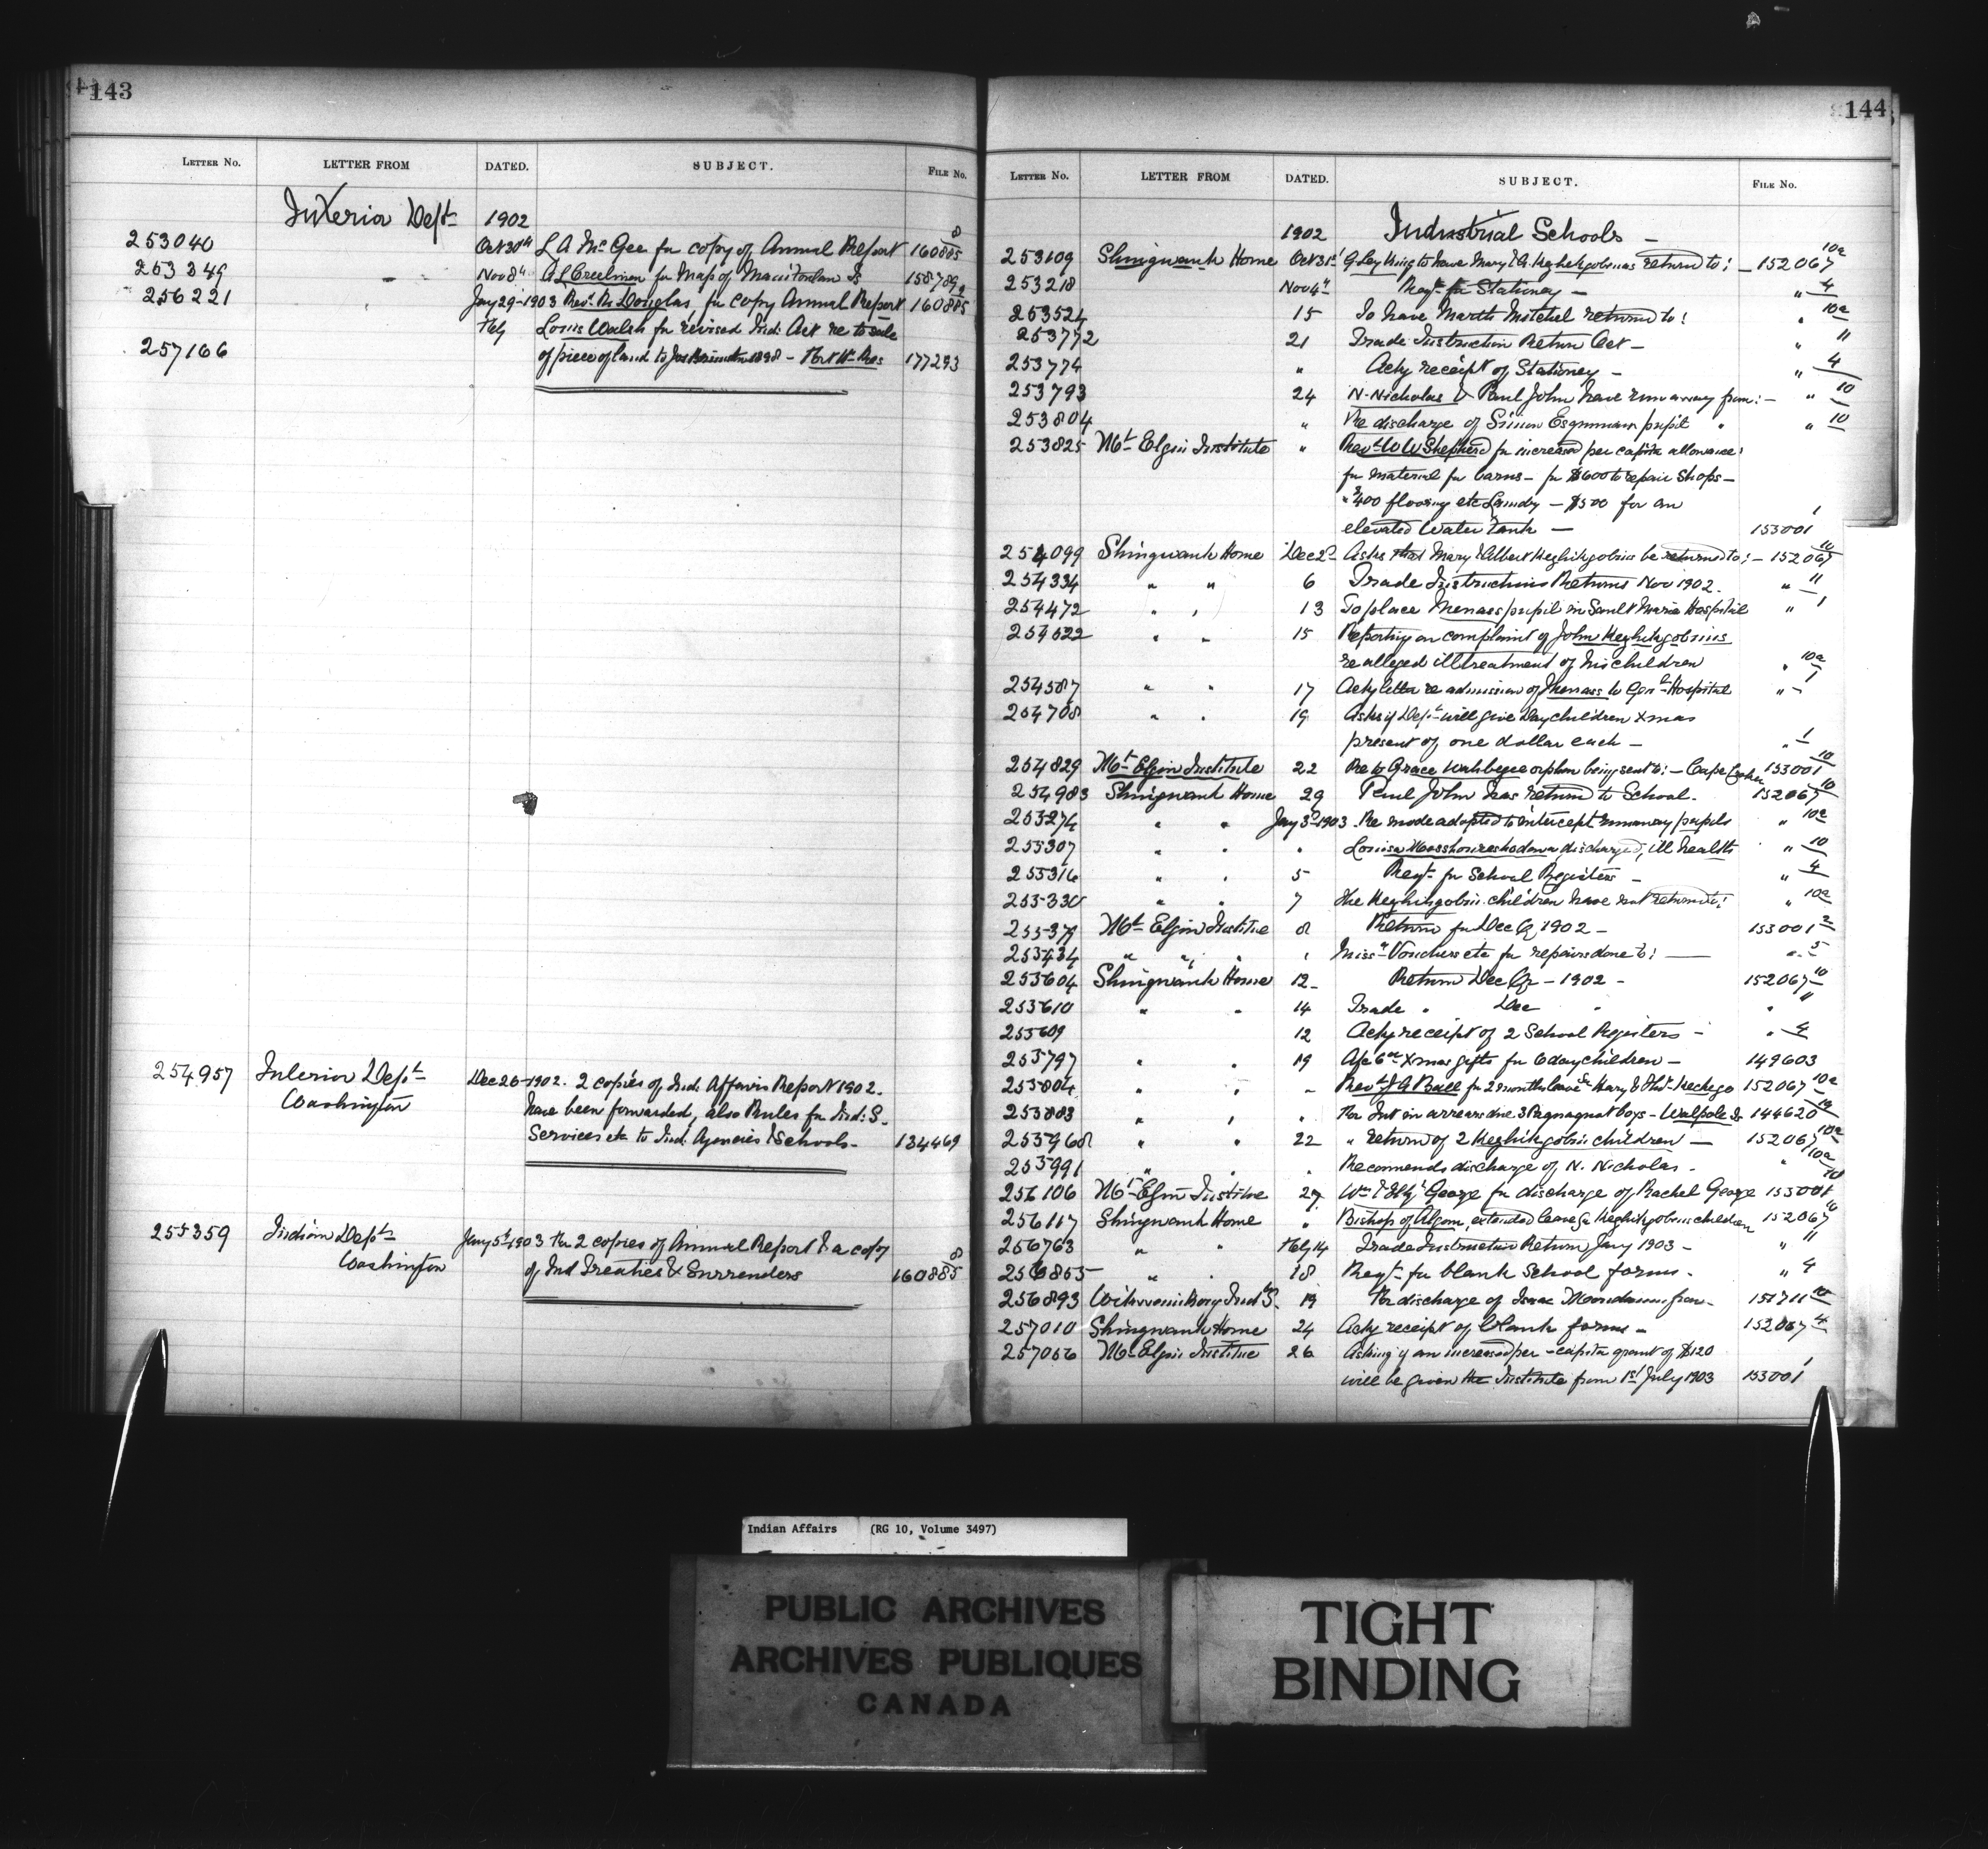 143
LETTER NO. LETTER FROM DATED. SUBJECT. FILE No.
Interior Dept 1902
253040 Oct 30th L A McGee for copy of Annual Report 160885 8
253349 - Nov 8th A L Creelman for Map of Manitoulin Is 158789
256221 Jany 29-1903 Revd Dr Douglas, for copy Annual Report 160885
Feby Louis Walsh for revised Ind: Act re to sale
257166 of piece of land to Jas 1898 - Fort Wm Res: 177293
254957 Interior Dept Dec 26-1902. 2 copies of Ind: Affairs Report 1902.
Washington have been forwarded, also Rules for Ind: S.
Services etc to Ind: Agencies & Schools- 134469
255359 Indian Dept Jany 5th 1903 For 2 copies of Annual Report & a copy
Washington of Ind Treaties & Surrenders 160885 8
144
LETTER NO. LETTER FROM DATED. SUBJECT. FILE No.
1902 Industrial Schools -
253109 Shingwauk Home Oct 31st G Ley King to have Mary & A. Keghikgobines return to: - 152067 10a
253218 Nov 4th Reqt for Stationery - " 4
253524 15 To have Martha Mitchel returned to! " 10a
253772 21 Trade Instruction Return Oct - " 11
253774 " Ackg receipt of Stationery - " 4
253793 24 N. Nicholas & Paul John have run away from: - " 10
253804 " Re discharge of Simon Esquimaux pupil " " 10
253825 Mt Elgin Institute " Revd W W Shepherd for increased per capita allowance:
for material for barns - for $600 to repair Shops -
" $400 flooring etc Laundry - $500 for an
elevated Water Tank - 153001 1
254099 Shingwauk Home Dec 2d Asks that Mary & Albert Keghikgobines be returned to: - 152067 10
254334 " " 6 Trade Instructions Returns Nov 1902. " 11
254472 " " 13 To place Menass pupil in Sault Marie Hospital " 1
254522 " " 15 Reporting on complaint of John Keghikgobines
re alleged illtreatment of his children " 10a
254587 " " 17 Ackg letter re admission of Menass to Genl Hospital " 1
254708 " " 19 Asks if Dept will give Day children Xmas
present of one dollar each - " 1
254829 Mt Elgin Institute 22 Re to Grace Wahbegee orphan being sent to: - Cape Croker 153001 10
254983 Shingwauk Home 29 Paul John has return to School. 152067 10
255274 " " Jany 3d 1903. Re mode adopted to intercept runaway pupils " 10a
255307 " " " Louisa discharged, ill health " 10
255316 " " 5 Reqt for School Registers - " 4
255330 " " 7 The Keghikgobines children have not returned to: " 10a
255379 Mt Elgin Institue 8 Return for Dec Qr 1902 - 153001 2
255434 " " " Vouchers etc for repairs done to: - " 5
255604 Shingwauk Home 12 - Return Dec Qr - 1902 - 152067 10
255610 " " 14 Trade " Dec " " 11
255609 12 Ackg receipt of 2 School Registers - " 4
255797 " " 19 Xmas gifts for 6 day children - 149603
255804 " " " Revd J A Ball for 2 months leave Mary & Kechego 152067 10a
255803 " " " For Int in arrears due 3 boys - Walpole Is. 144620
255968 " " 22 " return of 2 Keghikgobines children - 152067 10a
255991 " " " Recommends discharge of N. Nicholas - " 10a
256106 Mt Elgin Institue 27 Wm & George for discharge of Rachel George 153001 10
256117 Shingwauk Home " Bishop of Algoma, extended leave for Keghikgobines children 152067 10
256763 " " Feby 14 Trade Instruction Return Jany 1903 - " 11
256855 " " 18 Reqt for blank School forms - " 4
256893 Wikwemikong Ind S. 19 For discharge of Isaac from - 151711 10
257010 Shingwauk Home 24 Ackg receipt of blank forms - 152067 4
257056 Mt Elgin Institue 26 Asking if an increased per-capita grant of $120
will be given the Institute from 1st July 1903 153001 1
Indian Affairs (RG 10, Volume 3497)
PUBLIC ARCHIVES
ARCHIVES PUBLIQUES
CANADA
TIGHT
BINDING